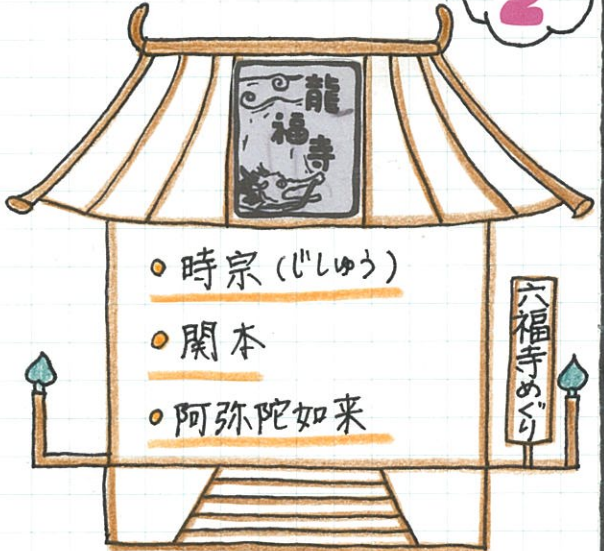 2
龍福寺
時宗(じしゅう)
関本
阿弥陀如来
六福寺めぐり